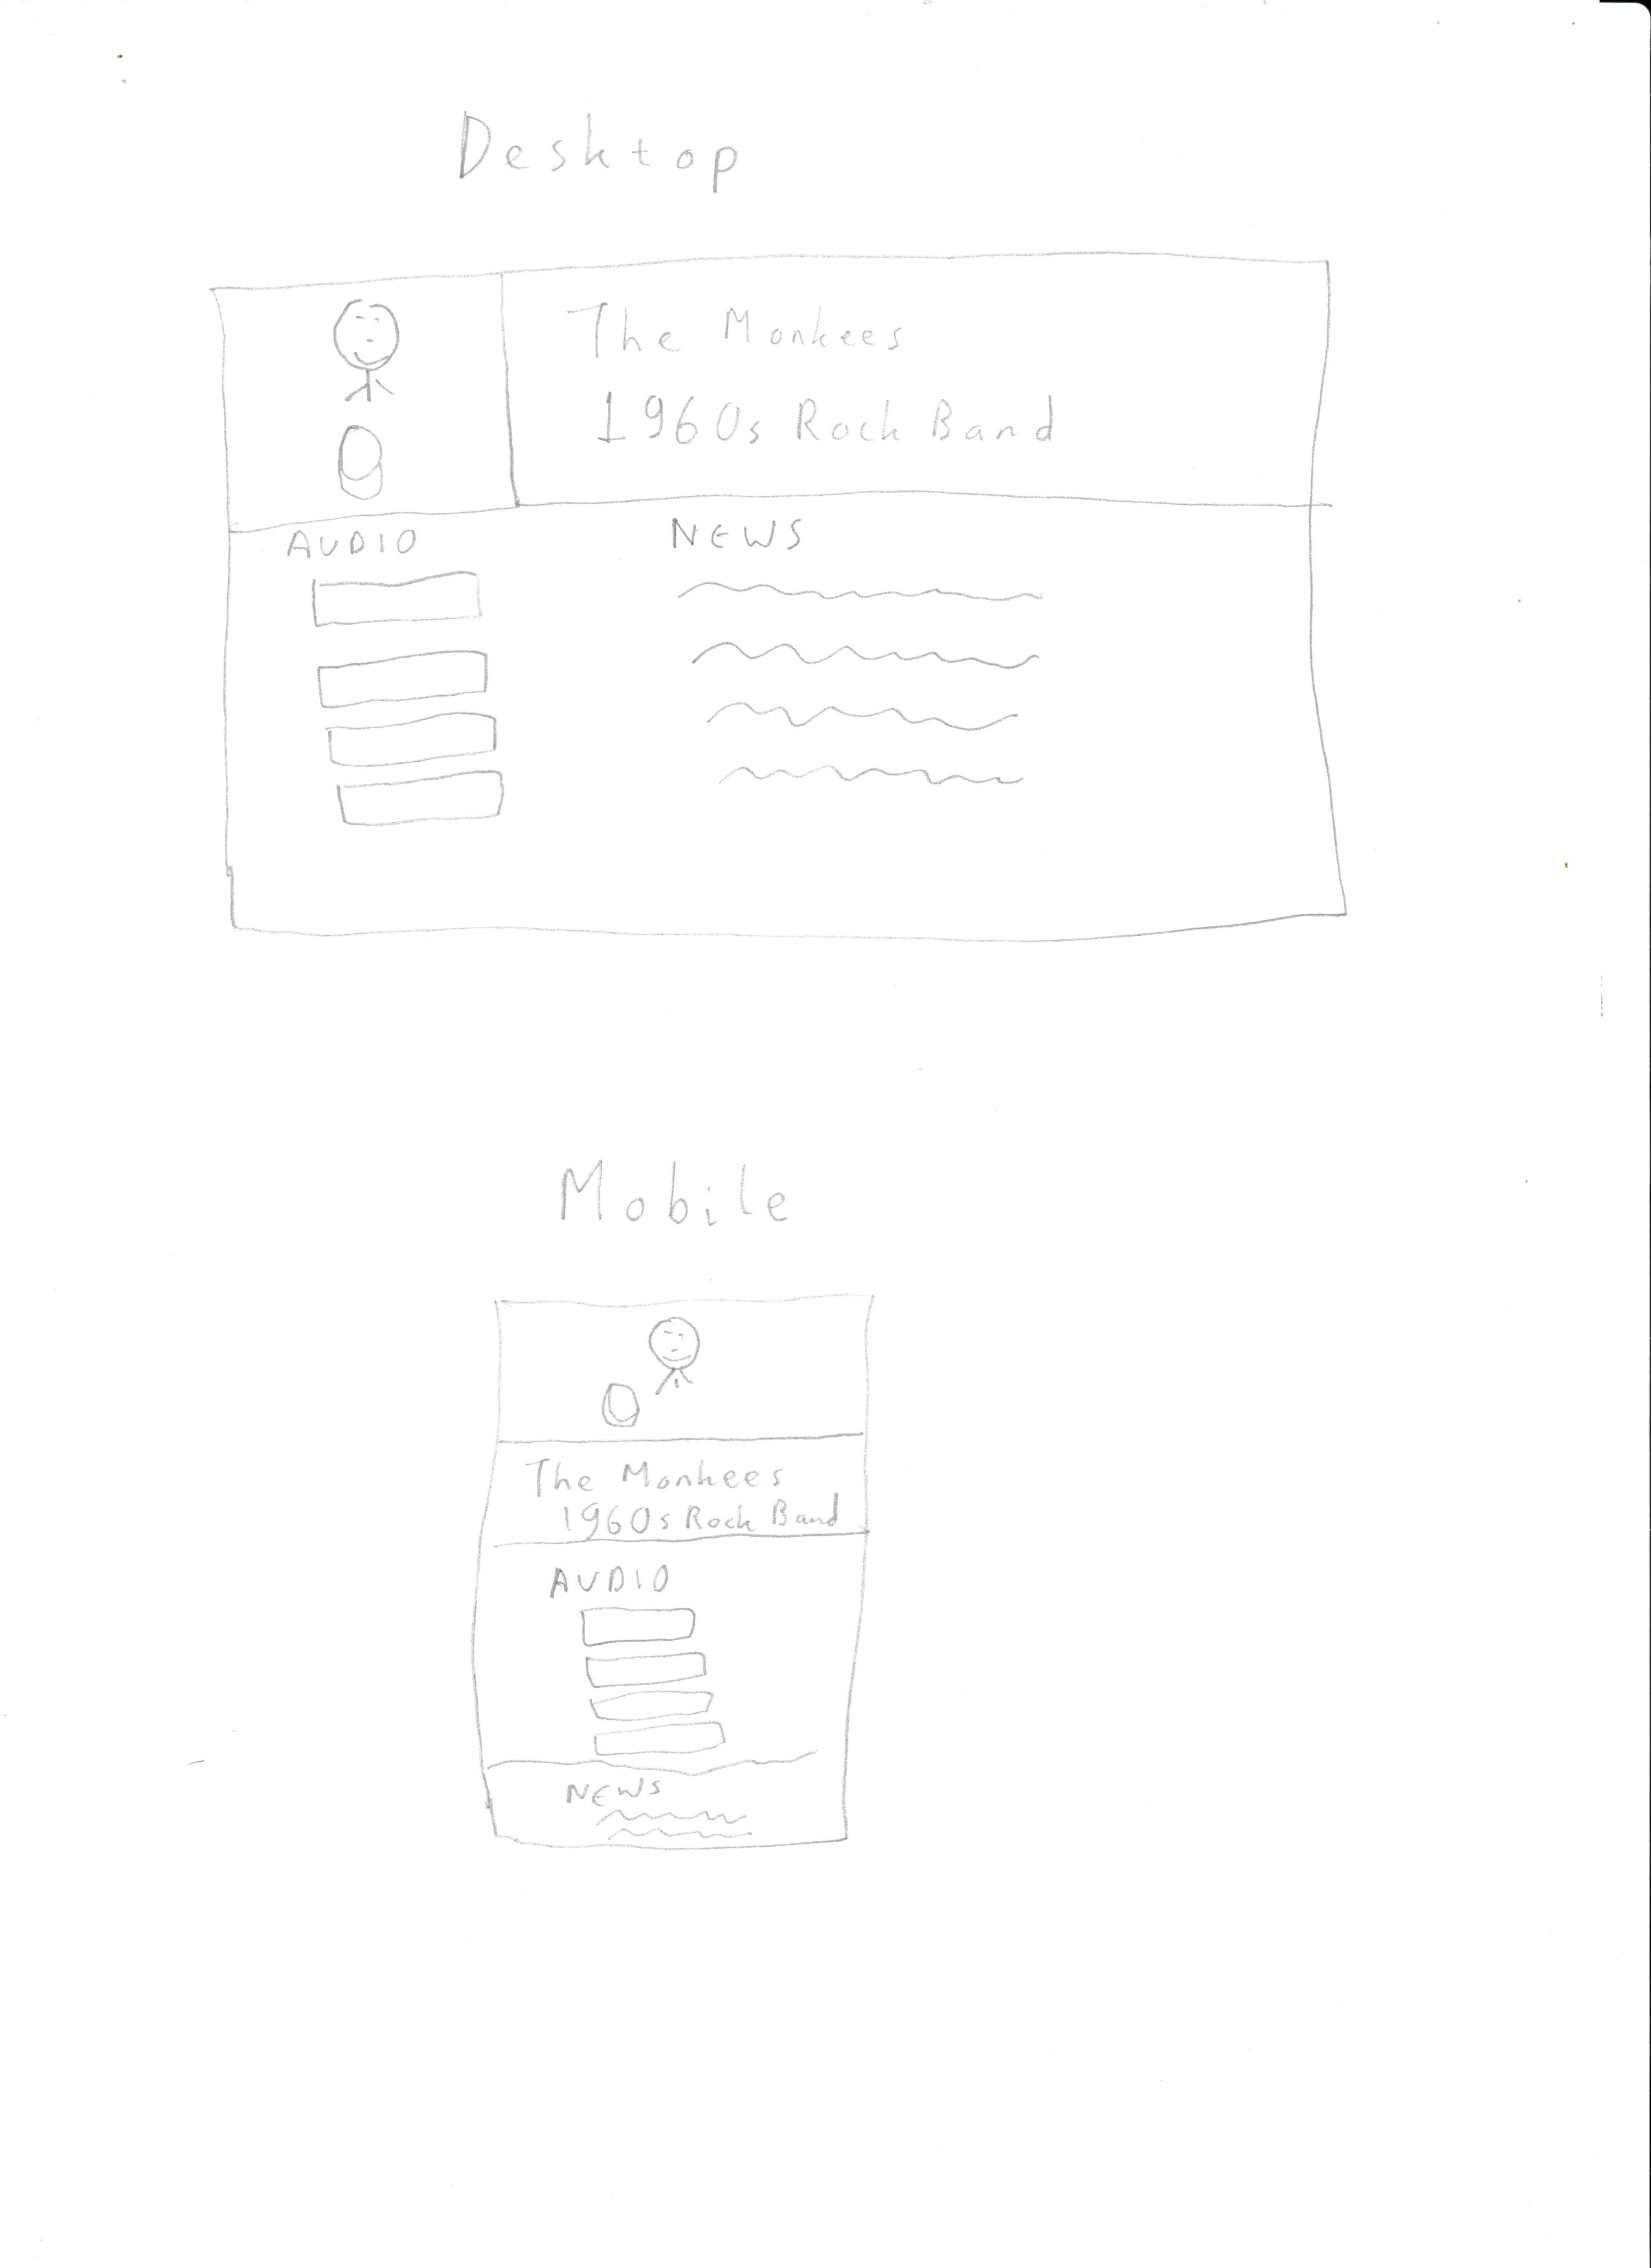 Desktop
The Monkees
1960s Rock Band
AUDIO
NEWS
Mobile
The Monkees
1960s Rock Band
AUDIO
NEWS